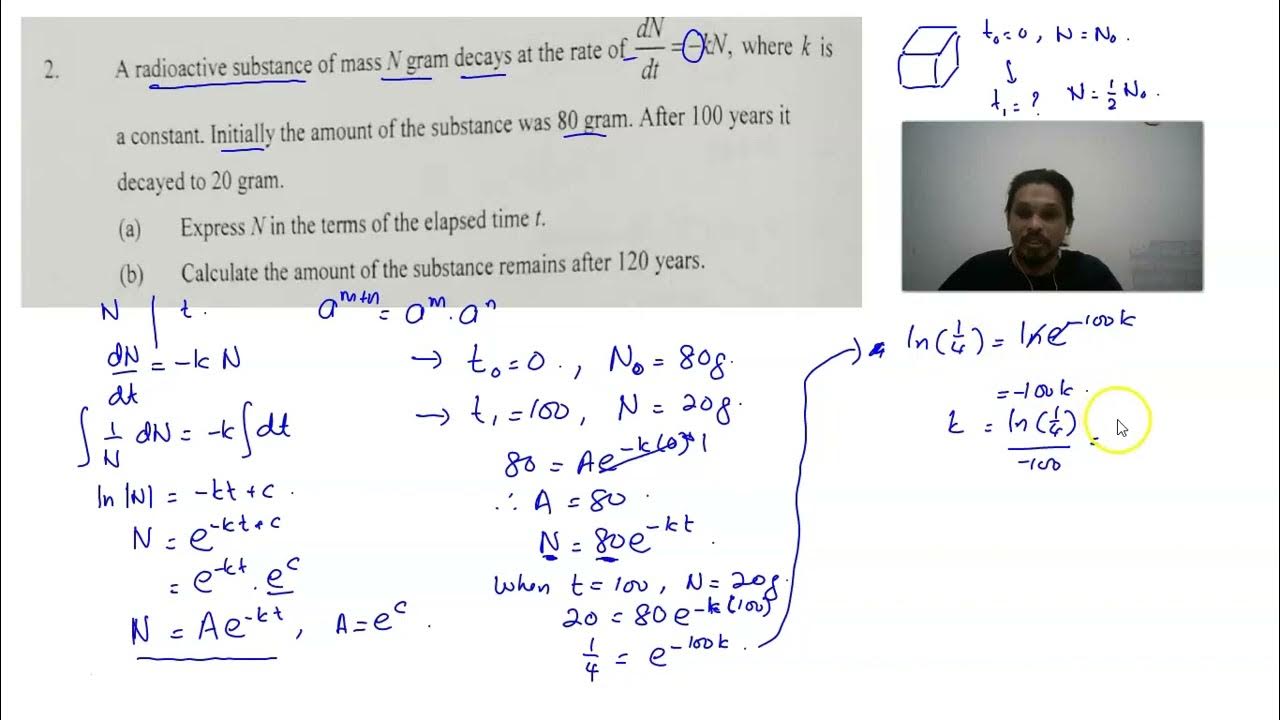 2. A radioactive substance of mass N gram decays at the rate of dN/dt = -kN, where k is
a constant. Initially the amount of the substance was 80 gram. After 100 years it
decayed to 20 gram.
(a) Express N in the terms of the elapsed time t.
(b) Calculate the amount of the substance remains after 120 years.
t₀ = 0 , N = N₀ .
↓
t₁ = ? N = 1/2 N₀ .
N | t .
dN/dt = -k N
∫ 1/N dN = -k ∫ dt
ln |N| = -kt + c .
N = e^(-kt+c)
= e^(-kt) . e^c
N = Ae^(-kt) , A = e^c .
a^(m+n) = a^m . a^n
→ t₀ = 0 , N₀ = 80g .
→ t₁ = 100 , N = 20g .
80 = Ae^(-k(0)) 1
∴ A = 80 .
N = 80e^(-kt) .
When t = 100 , N = 20g .
20 = 80e^(-k(100))
1/4 = e^(-100k) .
ln(1/4) = ln e^(-100k)
= -100k .
k = ln(1/4)/-100 =